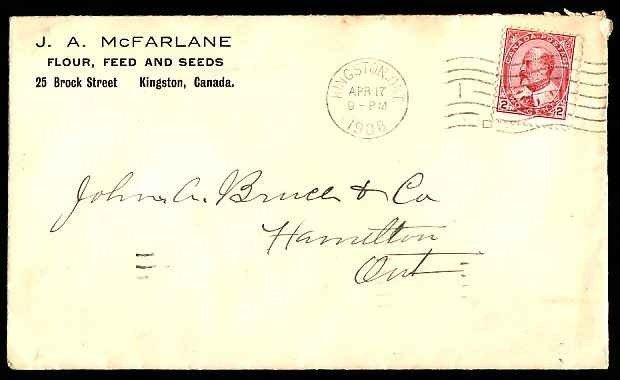 J. A. McFARLANE
FLOUR, FEED AND SEEDS
25 Brock Street Kingston, Canada.
KINGSTON, ONT.
APR 17
9 - PM
1908
CANADA POSTAGE
2 2
John A. Bruce & Co
Hamilton
Ont